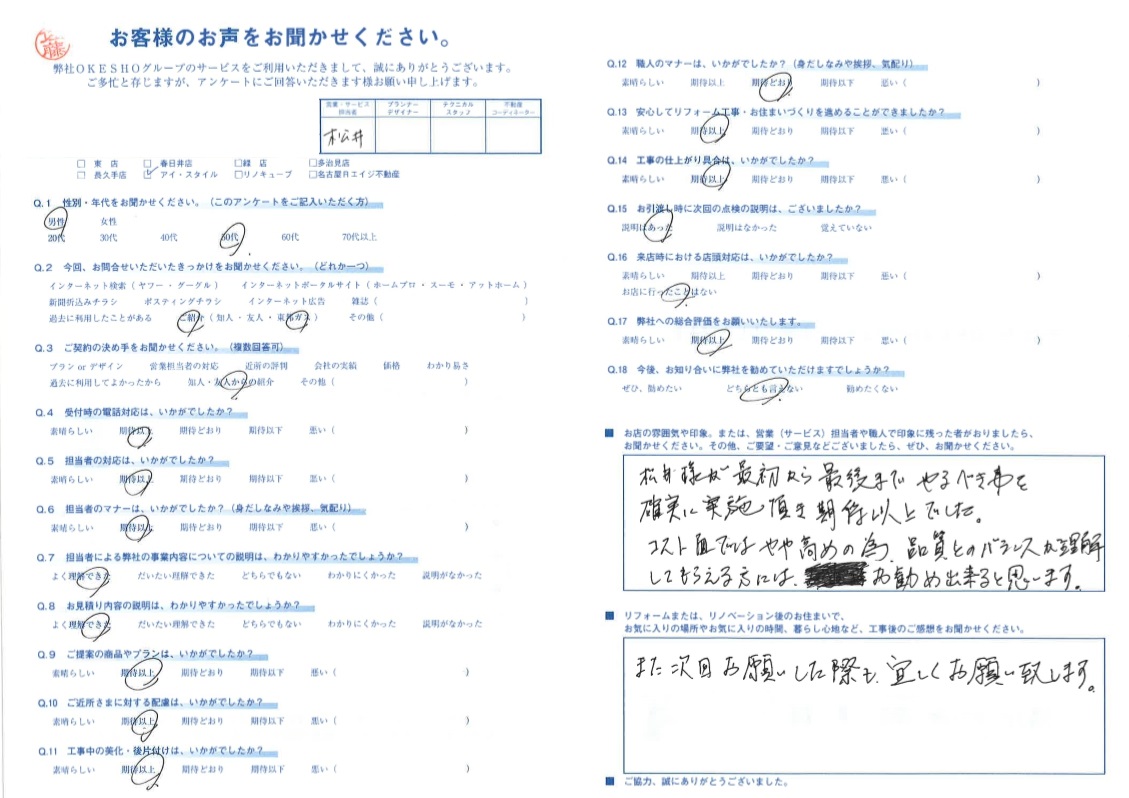 お客様のお声をお聞かせください。
弊社OKESHOグループのサービスをご利用いただきまして、誠にありがとうございます。
ご多忙と存じますが、アンケートにご回答いただきます様お願い申し上げます。
営業・サービス担当者 プランナーデザイナー テクニカルスタッフ 不動産コーディネーター
松井
□ 東 店 □ 春日井店 □緑 店 □多治見店
□ 長久手店 ☑ アイ・スタイル □リノキューブ □名古屋Rエイジ不動産
Q.1 性別・年代をお聞かせください。(このアンケートをご記入いただく方)
男性 女性
20代 30代 40代 50代 60代 70代以上
Q.2 今回、お問合せいただいたきっかけをお聞かせください。(どれか一つ)
インターネット検索(ヤフー・グーグル) インターネットポータルサイト(ホームプロ・スーモ・アットホーム)
新聞折込みチラシ ポスティングチラシ インターネット広告 雑誌( )
過去に利用したことがある ご紹介(知人・友人・東邦ガス) その他( )
Q.3 ご契約の決め手をお聞かせください。(複数回答可)
プラン or デザイン 営業担当者の対応 近所の評判 会社の実績 価格 わかり易さ
過去に利用してよかったから 知人・友人からの紹介 その他( )
Q.4 受付時の電話対応は、いかがでしたか?
素晴らしい 期待以上 期待どおり 期待以下 悪い( )
Q.5 担当者の対応は、いかがでしたか?
素晴らしい 期待以上 期待どおり 期待以下 悪い( )
Q.6 担当者のマナーは、いかがでしたか?(身だしなみや挨拶、気配り)
素晴らしい 期待以上 期待どおり 期待以下 悪い( )
Q.7 担当者による弊社の事業内容についての説明は、わかりやすかったでしょうか?
よく理解できた だいたい理解できた どちらでもない わかりにくかった 説明がなかった
Q.8 お見積り内容の説明は、わかりやすかったでしょうか?
よく理解できた だいたい理解できた どちらでもない わかりにくかった 説明がなかった
Q.9 ご提案の商品やプランは、いかがでしたか?
素晴らしい 期待以上 期待どおり 期待以下 悪い( )
Q.10 ご近所さまに対する配慮は、いかがでしたか?
素晴らしい 期待以上 期待どおり 期待以下 悪い( )
Q.11 工事中の美化・後片付けは、いかがでしたか?
素晴らしい 期待以上 期待どおり 期待以下 悪い( )
Q.12 職人のマナーは、いかがでしたか?(身だしなみや挨拶、気配り)
素晴らしい 期待以上 期待どおり 期待以下 悪い( )
Q.13 安心してリフォーム工事・お住まいづくりを進めることができましたか?
素晴らしい 期待以上 期待どおり 期待以下 悪い( )
Q.14 工事の仕上がり具合は、いかがでしたか?
素晴らしい 期待以上 期待どおり 期待以下 悪い( )
Q.15 お引渡し時に次回の点検の説明は、ございましたか?
説明はあった 説明はなかった 覚えていない
Q.16 来店時における店頭対応は、いかがでしたか?
素晴らしい 期待以上 期待どおり 期待以下 悪い( )
お店に行ったことはない
Q.17 弊社への総合評価をお願いいたします。
素晴らしい 期待以上 期待どおり 期待以下 悪い( )
Q.18 今後、お知り合いに弊社を勧めていただけますでしょうか?
ぜひ、勧めたい どちらとも言えない 勧めたくない
■ お店の雰囲気や印象。または、営業(サービス)担当者や職人で印象に残った者がおりましたら、
お聞かせください。その他、ご要望・ご意見などございましたら、ぜひ、お聞かせください。
松井様が最初から最後までやるべき事を
確実に実施頂き期待以上でした。
コスト面ではやや高めの為、品質とのバランスが理解
してもらえる方には、お勧め出来ると思います。
■ リフォームまたは、リノベーション後のお住まいで、
お気に入りの場所やお気に入りの時間、暮らし心地など、工事後のご感想をお聞かせください。
また次回お願いした際も、宜しくお願い致します。
■ ご協力、誠にありがとうございました。